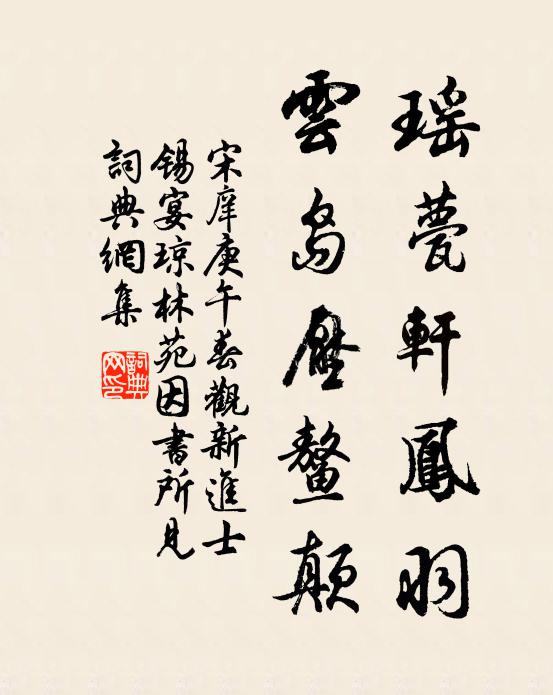 瑶甍軒鳳羽
雲島壓鼇顛
宋庠庚午春觀新進士
錫宴琼林苑因書所見
詞典網集
詞典網印